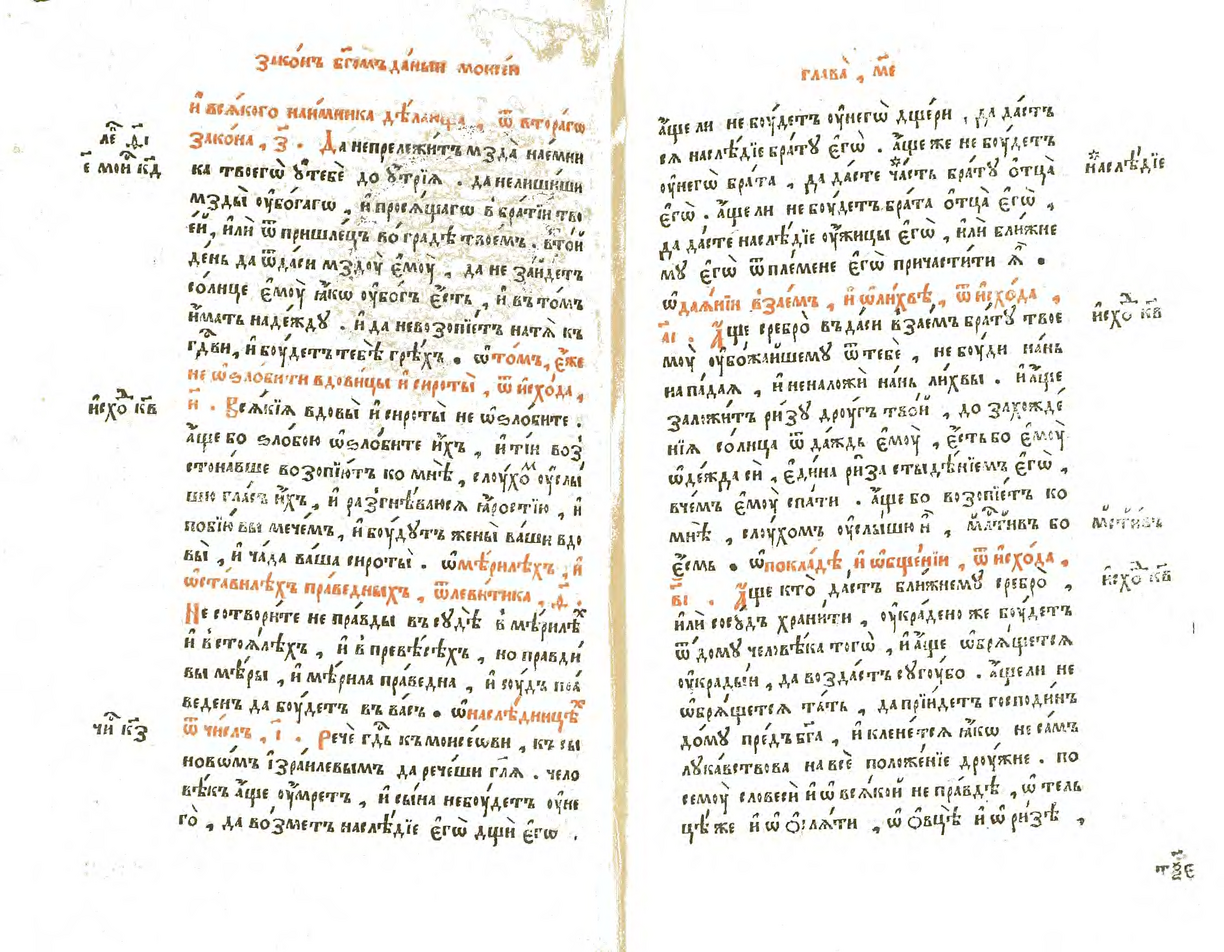 Зако́нъ бг҃омъ да́нныи моисе́й
и҆ всѧ́кого наи́мника дѣ́лающа , ѿ втора́гѡ
зако́на , з҃ . Да непрележи́тъ мзда̀ нае́мни
ка твоегѡ̀ ᲂу҆тебѐ до ᲂу҆́трїѧ . да нелиши́ши
мзды̀ ᲂу҆бо́гагѡ , и҆ просѧ́щагѡ в бра́тїи тво
е́й , и҆лѝ ѿ прише́лецъ во гра́дѣ твое́мъ . вто́й
де́нь да ѿда́си мздоу̀ є҆моу̀ , да не за́йдетъ
со́лнце є҆моу̀ ꙗ҆́кѡ ᲂу҆бо́гъ є҆́сть , и҆ вто́мъ
и҆́мать наде́ждꙋ . и҆ да невозопїе́тъ натѧ̀ къ
гд҇ви , и҆ бꙋ́детъ тебѣ̀ грѣ́хъ . ѡ҆то́мъ , є҆́же
не ѡ҆ѕло́бити вдови́цы и҆ сироты̀ , ѿ и҆схо́да ,
и҃ . Всѧ́кїѧ вдовы̀ и҆ сироты̀ не ѡ҆ѕло́бите .
а҆́ще бо ѕло́бою ѡ҆ѕло́бите и҆́хъ , и҆ ті́и воз
стона́вше возопїю́тъ ко мнѣ̀ , слꙋ́хоⷨ ᲂу҆слы
шю гла́съ и҆́хъ , и҆ разгнѣ́ваюсѧ ꙗ҆́ростїю , и҆
побїю̀ вы мече́мъ , и҆ бꙋ́дꙋтъ жены̀ ва́ши вдо
вы̀ , и҆ ча́да ва́ша сироты̀ . ѡ҆мѣ́рилѣхъ , и҆
ѡ҆ста́вилѣхъ пра́ведныхъ , ѿлеви́тика , ѳ҃ .
Не сотвори́те не пра́вды въ сꙋдѣ̀ в мѣ́рилѣⷯ
и҆ в стоѧ́лѣхъ , и҆ в превѣ́сѣхъ , но пра́вди
вы мѣ́ры , и҆ мѣ́рила пра́ведна , и҆ соу́дъ пра́
веденъ да боу́детъ въ ва́съ . ѡ҆наслѣ́дницѣⷯ
ѿ чи́слъ , і҃ . Речѐ гд҇ь къ моисе́ѡви , къ сы
новѡ́мъ і҆зра́илевымъ да рече́ши гл҃ѧ . чело
вѣ́къ а҆́ще ᲂу҆́мретъ , и҆ сы́на небоу́детъ ᲂу҆не
гѡ̀ , да во́зметъ наслѣ́дїе є҆гѡ̀ дщѝ є҆гѡ̀ .
ле҃ ѳ҃і
є҃ мои҃ к҃д
и҆схоⷣ к҃в
чи҃ к҃з
глава̀ , м҃е
а҆́ще ли не боу́детъ ᲂу҆негѡ̀ дще́ри , да да́стъ
сѧ наслѣ́дїе бра́тꙋ є҆гѡ̀ . а҆́ще же не боу́детъ
ᲂу҆негѡ̀ бра́та , да дасте ча́сть бра́тꙋ ѻ҆тца̀
є҆гѡ̀ . а҆́ще ли не боу́детъ бра́та ѻ҆тца̀ є҆гѡ̀ ,
да дасте наслѣ́дїе ᲂу҆́жицы є҆гѡ̀ , и҆лѝ бли́жне
мꙋ є҆гѡ̀ ѿ пле́мене є҆гѡ̀ причасти́ти ѧ҆̀ .
ѡ҆дая́нїи вза́емъ , и҆ ѡ҆ли́хвѣ , ѿ и҆схо́да ,
а҃і . А҆́ще сребро̀ въда́си вза́емъ бра́тꙋ твое
моу̀ ᲂу҆божа́йшемꙋ ѿ тебѐ , не боу́ди на́нь
напа́даѧ , и҆ неналожѝ на́нь ли́хвы . и҆ а҆́ще
заложи́тъ ри́зꙋ дрꙋ́гъ тво́й , до захожде́
нїѧ со́лнца ѿда́ждь є҆моу̀ , є҆́сть бо є҆моу̀
ѡ҆де́жда сѝ , є҆ди́на ри́за стыдѣ́нїемъ є҆гѡ̀ ,
вче́мъ є҆моу̀ спа́ти . а҆́ще бо возопїе́тъ ко
мнѣ̀ , слꙋ́хомъ ᲂу҆слы́шю ѝ , млⷭ҇тивъ бо
є҆́смь . ѡ҆покла́дѣ и҆ ѡ҆бще́нїи , ѿ и҆схо́да ,
в҃і . А҆́ще кто̀ да́стъ бли́жнемꙋ сребро̀ ,
и҆лѝ сосꙋ́дъ храни́ти , ᲂу҆кра́дено же боу́детъ
ѿ до́мꙋ человѣ́ка тогѡ̀ , и҆ а҆́ще ѡ҆брѧ́щетсѧ
ᲂу҆кра́дыи , да возда́стъ сꙋгоу́бо . а҆́щели не
ѡ҆брѧ́щетсѧ та́ть , да прїи́детъ господи́нъ
до́мꙋ предъ бг҃а , и҆ клене́тсѧ ꙗ҆́кѡ не са́мъ
лꙋка́вствова на всѐ положе́нїе дроу́жне . по
семоу̀ словесѝ и҆ ѡ҆ всѧ́кой не пра́вдѣ , ѡ҆ тель
цѣ́ же и҆ ѡ҆ ѻ҆слѧ́ти , ѡ҆ ѻ҆вцѣ̀ и҆ ѡ҆ ри́зѣ ,
наслѣ́дїе
и҆схоⷣ к҃в
млⷭ҇тивъ
и҆схоⷣ к҃в